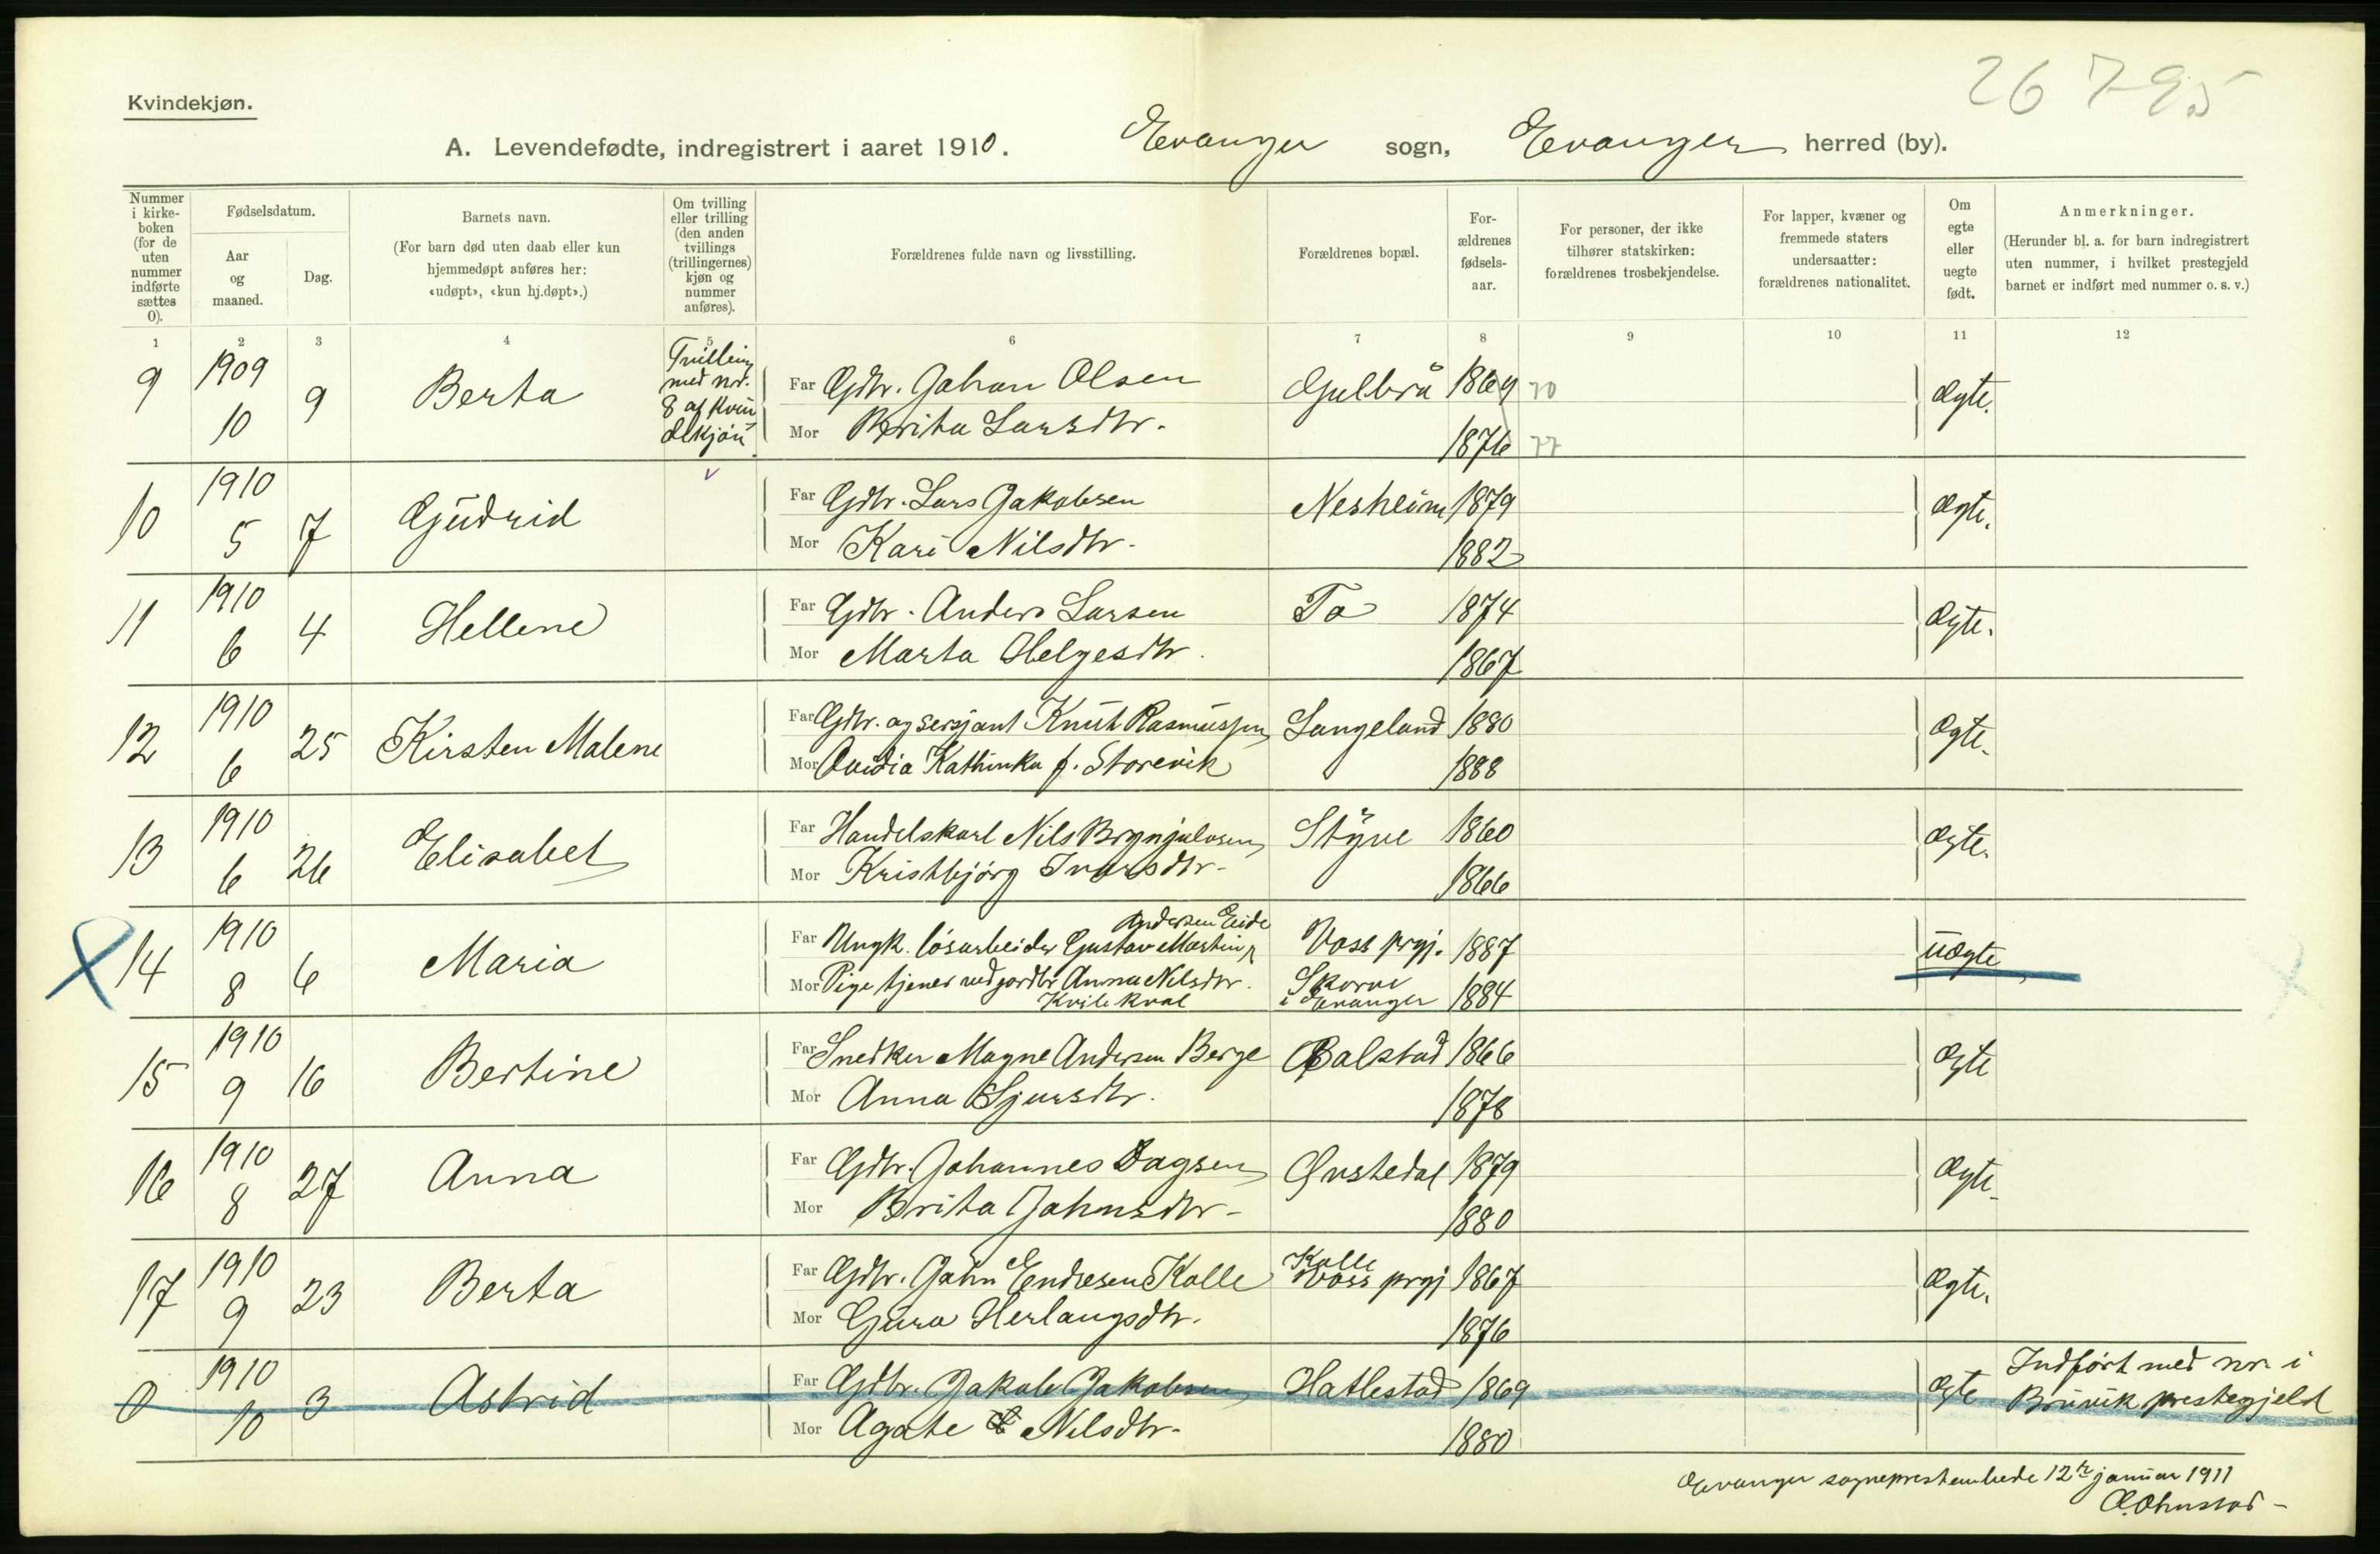 26 795
Kvindekjøn.
A. Levendefødte, indregistrert i aaret 1910. Evanger sogn, Evanger herred (by).
Nummer i kirke-boken (for de uten nummer indførte sættes 0).
Fødselsdatum.
Aar og maaned.
Dag.
Barnets navn.
(For barn død uten daab eller kun hjemmedøpt anføres her: «udøpt», «kun hj.døpt».)
Om tvilling eller trilling (den anden tvillings (trillingernes) kjøn og nummer anføres).
Forældrenes fulde navn og livsstilling.
Forældrenes bopæl.
For-ældrenes fødsels-aar.
For personer, der ikke tilhører statskirken: forældrenes trosbekjendelse.
For lapper, kvæner og fremmede staters undersaatter: forældrenes nationalitet.
Om egte eller uegte født.
Anmerkninger.
(Herunder bl. a. for barn indregistrert uten nummer, i hvilket prestegjeld barnet er indført med nummer o. s. v.)
1 2 3 4 5 6 7 8 9 10 11 12
9 1909 10 9 Berta Tvilling med nr. 8 af kvindekjøn
Far Gdbr. Johan Olsen Gulbrå 1869 70 Ægte.
Mor Brita Larsdtr. 1876 77
10 1910 5 7 Gudrid
Far Gdbr. Lars Jakobsen Nesheim 1879 Ægte.
Mor Kari Nilsdtr. 1882
11 1910 6 4 Hellene
Far Gdbr. Anders Larsen Tø 1874 Ægte.
Mor Marta Helgesdtr. 1867
12 1910 6 25 Kirsten Malene
Far Gdbr. og sersjant Knut Rasmussen Langeland 1880 Ægte.
Mor Ovidia Kathinka f. Storevik 1888
13 1910 6 26 Elisabet
Far Handelskarl Nils Brynjulvsen Styve 1860 Ægte.
Mor Kristbjørg Ivarsdtr. 1866
14 1910 8 6 Maria
Andersen Eide
Far Ungk. løsarbeider Gustav Martin Voss prgj. 1887 uægte
Mor Pige tjener ved gardbr. Anna Nilsdtr. Skorve 1884
Kvilekval i Evanger
15 1910 9 16 Bertine
Far Snedker Magne Andersen Berge Bolstad 1866 Ægte
Mor Anna Sjursdtr. 1878
16 1910 8 27 Anna
Far Gdbr. Johannes Dagsen Øvstedal 1879 Ægte.
Mor Brita Johnsdtr. 1880
17 1910 9 23 Berta
Far Gdbr. John Endresen Kolle Kolle Voss prgj 1867 Ægte.
Mor Guro Herlaugsdtr. 1876
0 1910 10 3 Astrid
Far Gdbr. Jakob Jakobsen Hatlestad 1869 Ægte Indført med nr. i
Mor Agate Nilsdtr. 1880 Bruvik prestegjeld
Evanger sogneprestembede 12te januar 1911
O. Ohnstad